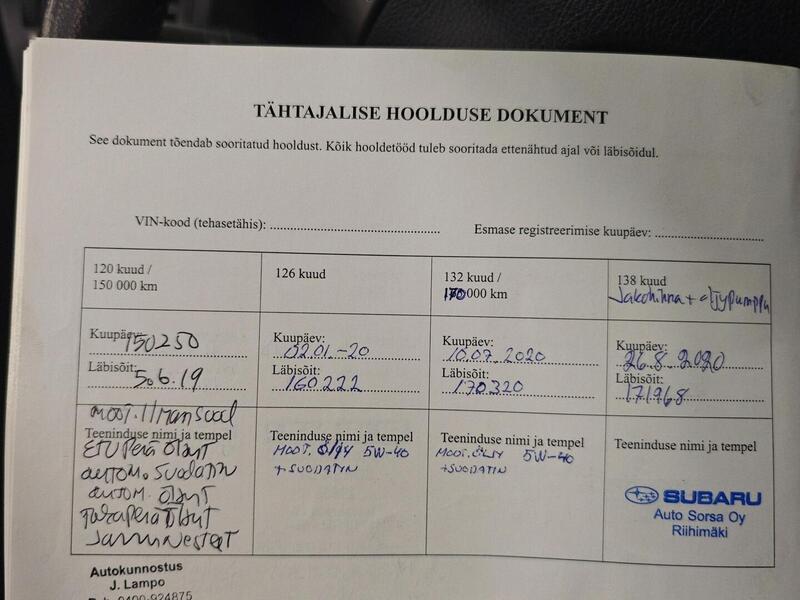 TÄHTAJALISE HOOLDUSE DOKUMENT
See dokument tõendab sooritatud hooldust. Kõik hooldetööd tuleb sooritada ettenähtud ajal või läbisõidul.
VIN-kood (tehasetähis):
Esmase registreerimise kuupäev:
120 kuud /
150 000 km
126 kuud
132 kuud /
170 000 km
138 kuud
Jakohihna + öljypumppu
Kuupäev:
150250
Läbisõit:
5.6.19
Kuupäev:
02.01.-20
Läbisõit:
160222
Kuupäev:
10.07.2020
Läbisõit:
170320
Kuupäev:
26.8.2020
Läbisõit:
171968
MOOT. Ilman Suod
Teeninduse nimi ja tempel
ETUPERÄ ÖLJYT
autom. Suodatin
autom. ÖLJYT
Takaperä ÖLJYT
Jarrunesteet
Teeninduse nimi ja tempel
MOOT. ÖLJY 5W-40
+ SUODATIN
Teeninduse nimi ja tempel
MOOT. ÖLJY 5W-40
+ SUODATIN
Teeninduse nimi ja tempel
SUBARU
Auto Sorsa Oy
Riihimäki
Autokunnostus
J. Lampo
0400-924875